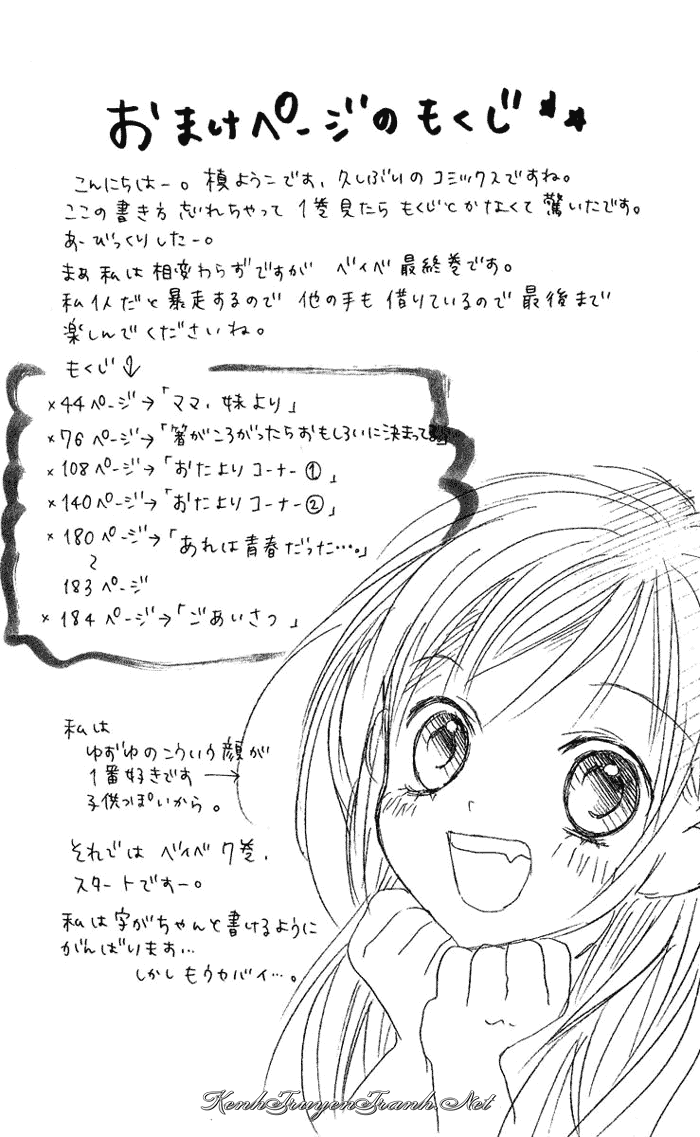 おまけページのもくじ★★
こんにちはー。槙ようこです、久しぶりのコミックスですね。
ここの書き方忘れちゃって 1巻見たら もくじとかなくて驚いたです。
あーびっくりしたー。
まぁ私は相変わらずですが ベイベ最終巻です。
私1人だと暴走するので 他の手も借りているので最後まで
楽しんでくださいね。
もくじ↓
×44ページ→「ママ、妹より」
×76ページ→「箸がころがったらおもしろいに決まってる」
×108ページ→「おたよりコーナー①」
×140ページ→「おたよりコーナー②」
×180ページ→「あれは青春だった…。」
〜
183ページ
×184ページ→「ごあいさつ」
私は
ゆずゆのこういう顔が
1番好きです→
子供っぽいから。
それでは ベイベ7巻、
スタートですー。
私は字がちゃんと書けるように
がんばります…
しかしもうヤバイ…。
KenhTruyenTranh.Net